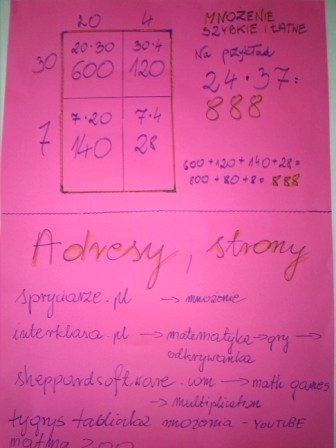 20 4
MNOŻENIE
SZYBKIE I ŁATNE
30 20·30 30·4
600 120
Na przykład
24·37=
888
7 7·20 7·4
140 28
600+120+140+28=
800+80+8=888
Adresy, strony
spryciarze.pl → mnożenie
interklasa.pl → matematyka → gry →
odkrywanka
sheppardsoftware.com → math games
→ multiplication
tygrys tabliczka mnożenia - YOUTUBE
matma zoo